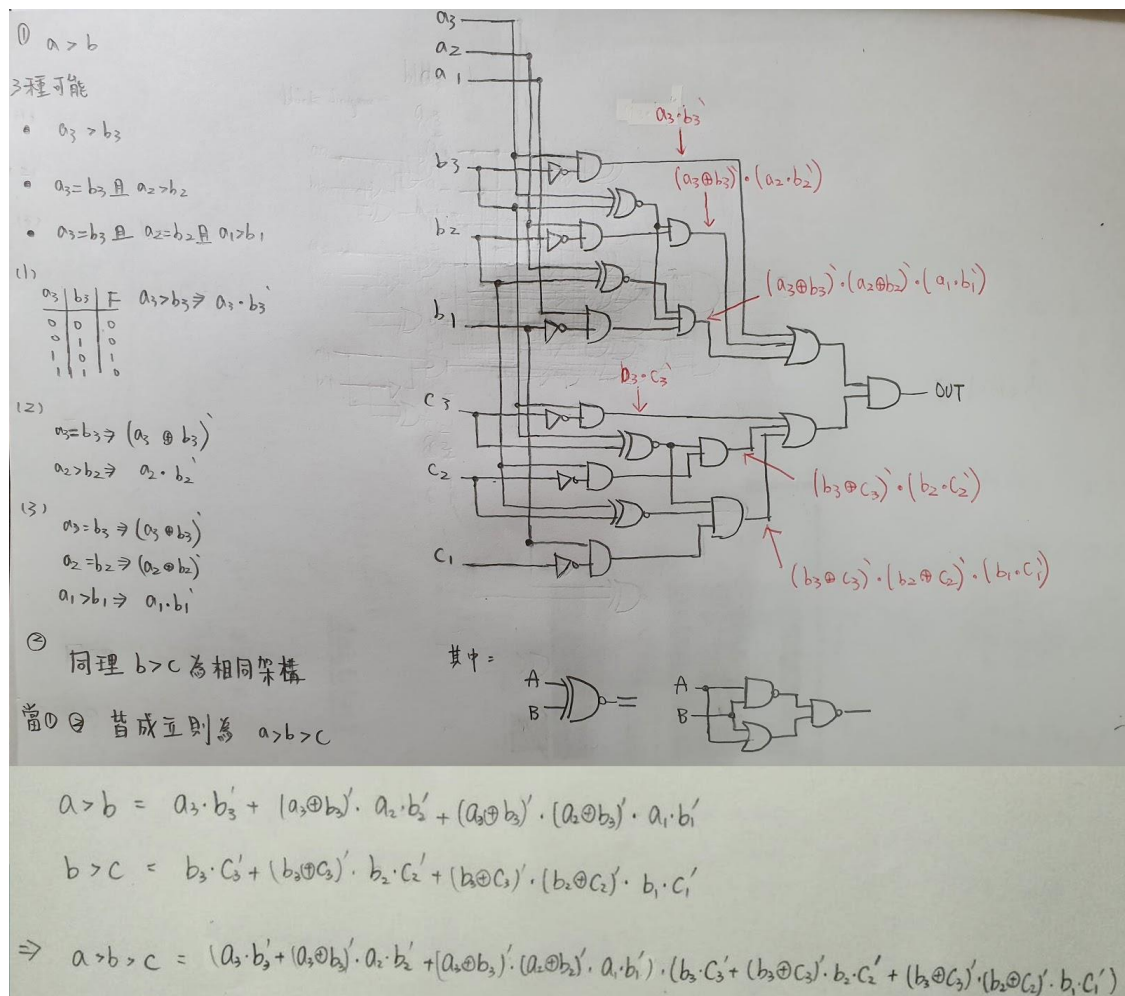 ① a > b
3種可能
• a₃ > b₃
• a₃ = b₃ 且 a₂ > b₂
• a₃ = b₃ 且 a₂ = b₂ 且 a₁ > b₁
(1)
a₃ b₃ F a₃ > b₃ ⇒ a₃·b₃'
0 0 0
0 1 0
1 0 1
1 1 0
(2)
a₃ = b₃ ⇒ (a₃ ⊕ b₃)'
a₂ > b₂ ⇒ a₂·b₂'
(3)
a₃ = b₃ ⇒ (a₃ ⊕ b₃)'
a₂ = b₂ ⇒ (a₂ ⊕ b₂)'
a₁ > b₁ ⇒ a₁·b₁'
② 同理 b > c 為相同架構
當① ② 皆成立則為 a > b > c
a₃
a₂
a₁
b₃
b₂
b₁
c₃
c₂
c₁
a₃·b₃'
(a₃⊕b₃)'·(a₂·b₂')
(a₃⊕b₃)'·(a₂⊕b₂)'·(a₁·b₁')
b₃·c₃'
OUT
(b₃⊕c₃)'·(b₂·c₂')
(b₃⊕c₃)'·(b₂⊕c₂)'·(b₁·c₁')
其中:
A
B
=
A
B
a > b = a₃·b₃' + (a₃⊕b₃)'·a₂·b₂' + (a₃⊕b₃)'·(a₂⊕b₃)'·a₁·b₁'
b > c = b₃·c₃' + (b₃⊕c₃)'·b₂·c₂' + (b₃⊕c₃)'·(b₂⊕c₂)'·b₁·c₁'
⇒ a > b > c = (a₃·b₃' + (a₃⊕b₃)'·a₂·b₂' + (a₃⊕b₃)'·(a₂⊕b₂)'·a₁·b₁')·(b₃·c₃' + (b₃⊕c₃)'·b₂·c₂' + (b₃⊕c₃)'·(b₂⊕c₂)'·b₁·c₁')